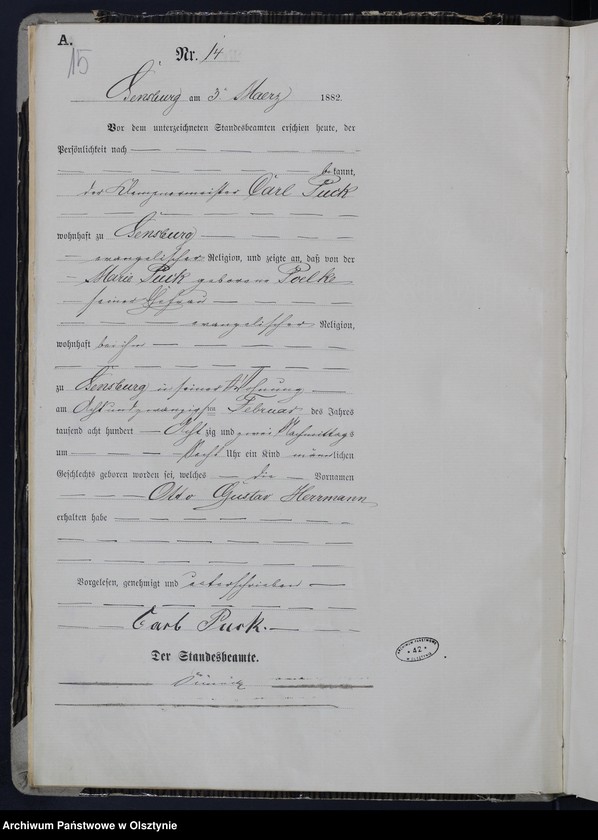 A.
15
Nr. 14
Sensburg am 3. Maerz 1882.
Vor dem unterzeichneten Standesbeamten erschien heute, der
Persönlichkeit nach
be kannt,
der Klempnermeister Carl Puck
wohnhaft zu Sensburg
evangelischer Religion, und zeigte an, daß von der
Marie Puck geborene Poelke
seiner Ehefrau
evangelischer Religion,
wohnhaft bei ihm
zu Sensburg in seiner Wohnung
am Acht und zwanzigsten Februar des Jahres
tausend acht hundert Acht zig und zwei Nachmittags
um Uhr ein Kind männlichen
Geschlechts geboren worden sei, welches die Vornamen
Otto Gustav Herrmann
erhalten habe
Vorgelesen, genehmigt und unterschrieben
Carl Puck.
Der Standesbeamte.
ARCHIWUM PAŃSTWOWE
* 42 *
W OLSZTYNIE
Archiwum Państwowe w Olsztynie